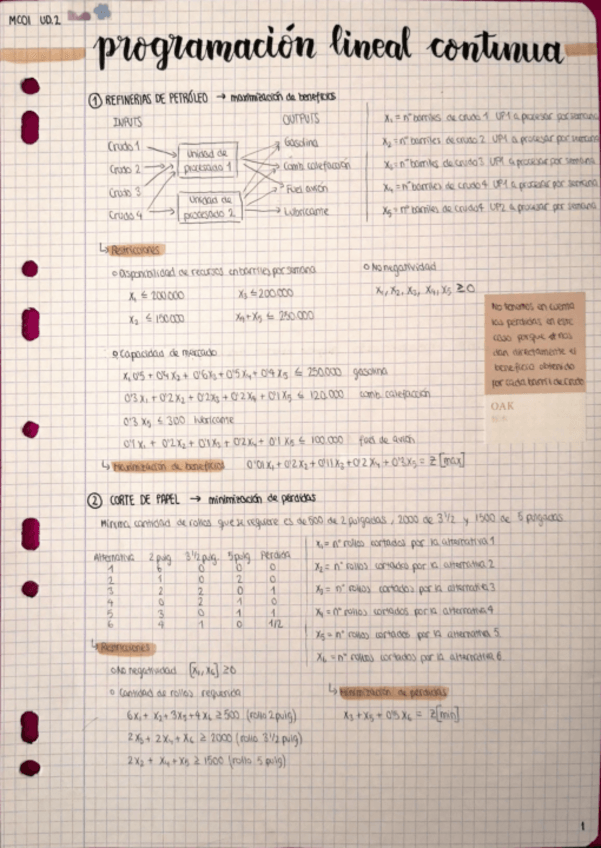 MC01 UD.2
programación lineal continua
① REFINERIAS DE PETRÓLEO → maximización de beneficios
INPUTS
OUTPUTS
Crudo 1
Crudo 2
Crudo 3
Crudo 4
unidad de procesado 1
unidad de procesado 2
Gasolina
Comb. calefacción
Fuel avión
Lubricante
X₁ = nº barriles de crudo 1 UP1 a procesar por semana
X₂ = nº barriles de crudo 2 UP1 a procesar por semana
X₃ = nº barriles de crudo 3 UP1 a procesar por semana
X₄ = nº barriles de crudo 4 UP1 a procesar por semana
X₅ = nº barriles de crudo 4 UP2 a procesar por semana
↳ Restricciones
o Disponibilidad de recursos en barriles por semana
X₁ ≤ 200.000
X₃ ≤ 200.000
X₂ ≤ 150.000
X₄+X₅ ≤ 250.000
o No negatividad
X₁, X₂, X₃, X₄, X₅ ≥ 0
No tenemos en cuenta
las perdidas en este
caso porque nos
dan directamente el
beneficio obtenido
por cada barril de crudo
OAK
o Capacidad de mercado
X₁ 0'5 + 0'4 X₂ + 0'6 X₃ + 0'5 X₄ + 0'4 X₅ ≤ 250.000 gasolina
0'3 X₁ + 0'2 X₂ + 0'2 X₃ + 0'2 X₄ + 0'1 X₅ ≤ 120.000 comb. calefacción
0'3 X₅ ≤ 300 lubricante
0'1 X₁ + 0'2 X₂ + 0'1 X₃ + 0'2 X₄ + 0'1 X₅ ≤ 100.000 fuel de avión
↳ Maximización de beneficios 0'01 X₁ + 0'2 X₂ + 0'11 X₃ + 0'2 X₄ + 0'3 X₅ = Z [max]
② CORTE DE PAPEL → minimización de pérdidas
Mínima cantidad de rollos que se requiere es de 500 de 2 pulgadas, 2000 de 3 1/2 y 1500 de 5 pulgadas
Alternativa 2 pulg 3 1/2 pulg 5 pulg Perdida
1 6 0 0 0
2 1 0 2 0
3 2 2 0 1
4 0 2 1 0
5 3 0 1 1
6 4 1 0 1/2
X₁ = nº rollos cortados por la alternativa 1
X₂ = nº rollos cortados por la alternativa 2
X₃ = nº rollos cortados por la alternativa 3
X₄ = nº rollos cortados por la alternativa 4
X₅ = nº rollos cortados por la alternativa 5
X₆ = nº rollos cortados por la alternativa 6
↳ Restricciones
o No negatividad [X₁, X₆] ≥ 0
o Cantidad de rollos requerida
6X₁ + X₂ + 3X₅ + 4X₆ ≥ 500 (rollo 2 pulg)
2X₃ + 2X₄ + X₆ ≥ 2000 (rollo 3 1/2 pulg)
2X₂ + X₄ + X₅ ≥ 1500 (rollo 5 pulg)
↳ Minimización de pérdidas
X₃ + X₅ + 0'5 X₆ = Z [min]
1